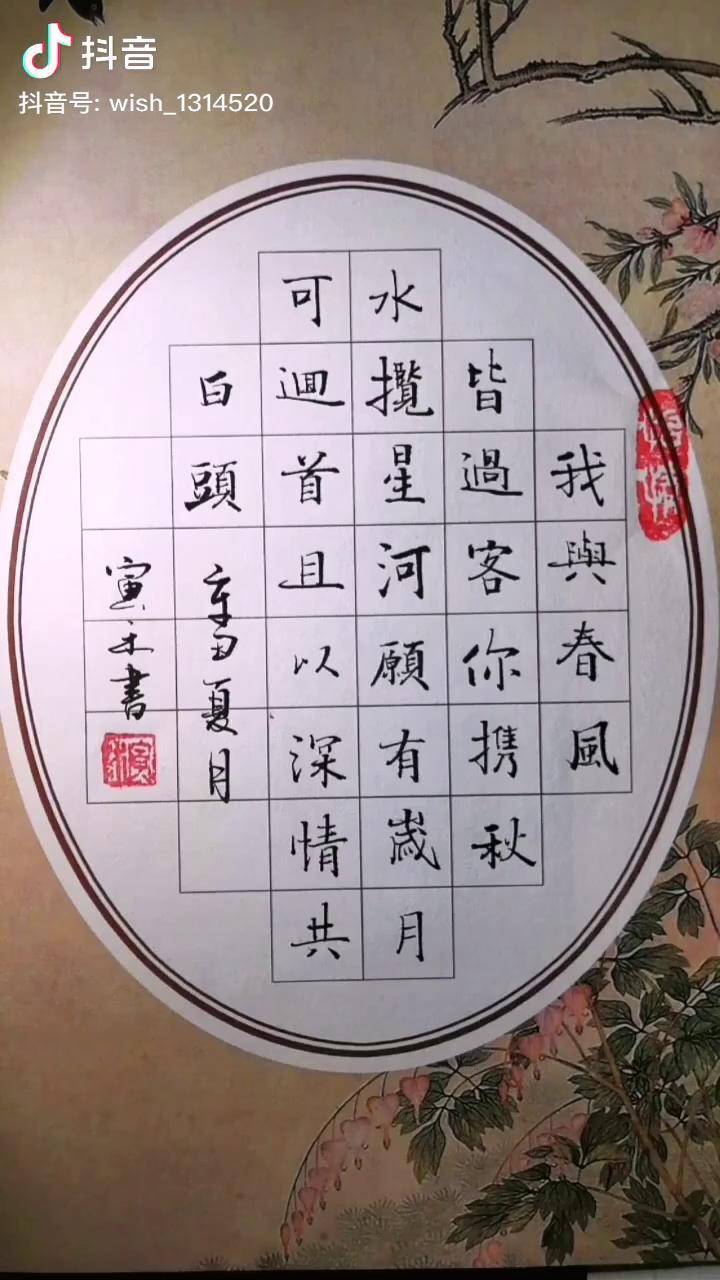 抖音
抖音号: wish_1314520
我與春風
皆過客你携秋
水攬星河願有嵗月
可迴首且以深情共
白頭 辛丑夏月
寅 書